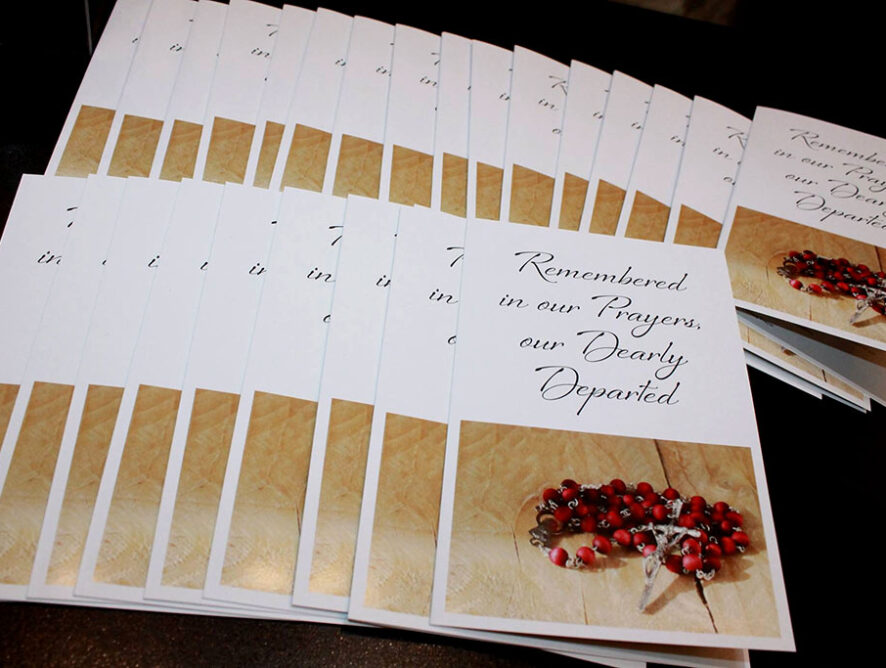 Remembered
in our Prayers,
our Dearly
Departed
Remembered
in our Prayers
our Dearly
Departed